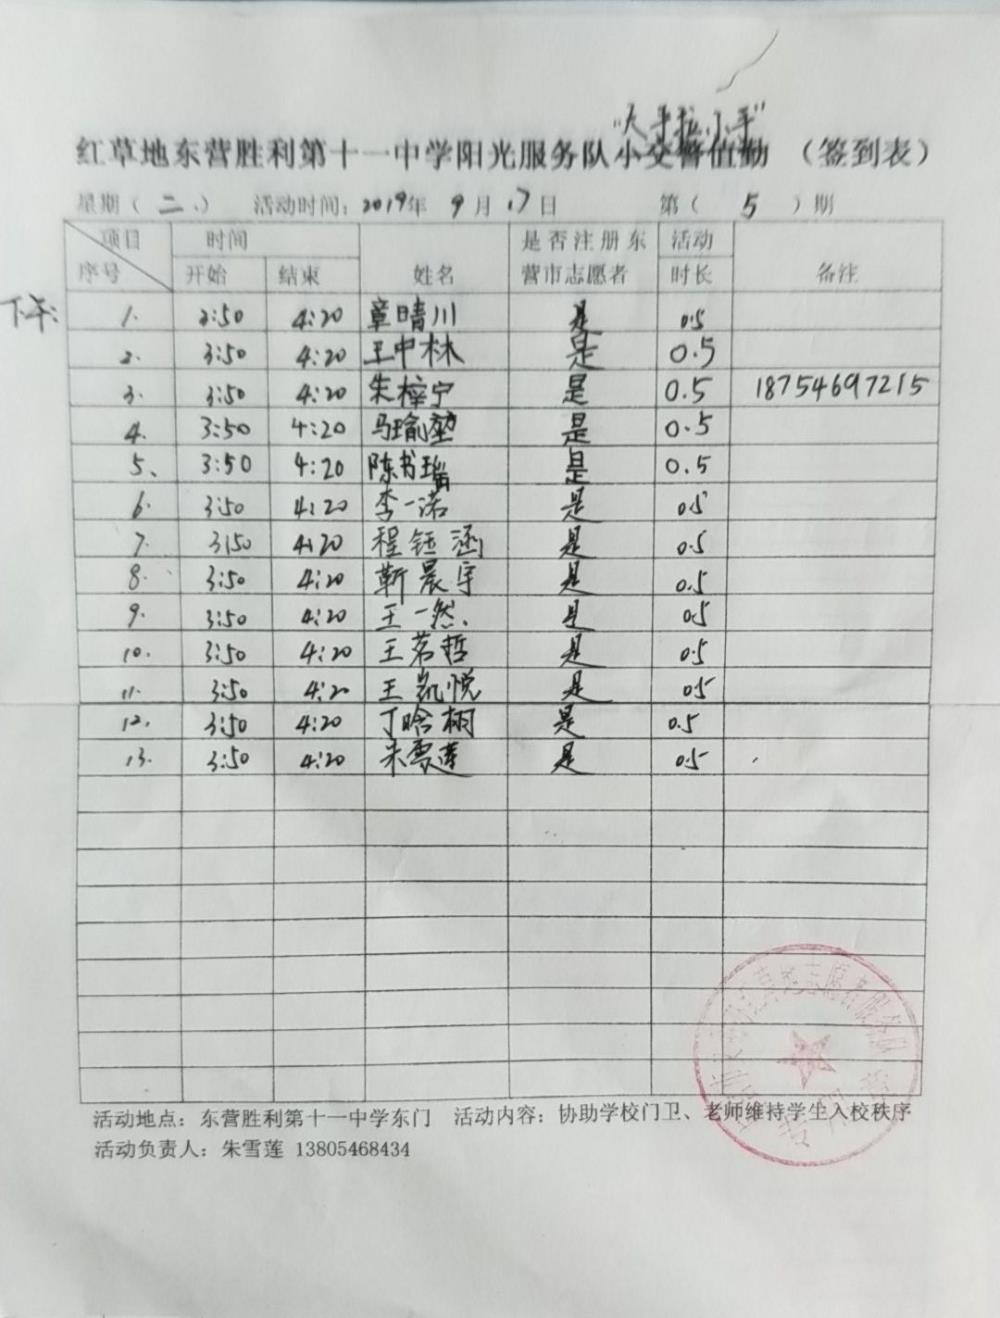 "大手拉小手"
红草地东营胜利第十一中学阳光服务队小交警值勤 (签到表)
星期(二、) 活动时间:2019年 9月17日 第(5)期
项目 时间 是否注册东 活动
序号 开始 结束 姓名 营市志愿者 时长 备注
下午: 1. 3:50 4:20 章晴川 是 0.5
2. 3:50 4:20 王中林 是 0.5
3. 3:50 4:20 朱梓宁 是 0.5 18754697215
4. 3:50 4:20 马瑜堃 是 0.5
5、 3:50 4:20 陈书瑶 是 0.5
6. 3:50 4:20 李一诺 是 0.5
7. 3:50 4:20 程钰涵 是 0.5
8. 3:50 4:20 靳晨宇 是 0.5
9. 3:50 4:20 王一然. 是 0.5
10. 3:50 4:20 王茗哲 是 0.5
11. 3:50 4:20 王凯悦 是 0.5
12. 3:50 4:20 丁晗栩 是 0.5
13. 3:50 4:20 朱雪莲 是 0.5
活动地点:东营胜利第十一中学东门 活动内容:协助学校门卫、老师维持学生入校秩序
活动负责人:朱雪莲 13805468434